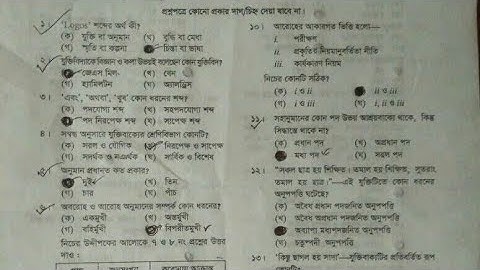 প্রশ্নপত্রে কোনো প্রকার দাগ/চিহ্ন দেয়া যাবে না।
১। 'Logos' শব্দের অর্থ কী?
(ক) যুক্তি বা অনুমান (খ) বুদ্ধি বা মেধা
(গ) স্মৃতি বা কল্পনা চিন্তা বা ভাষা
২। যুক্তিবিদ্যাকে বিজ্ঞান ও কলা উভয়ই বলেছেন কোন যুক্তিবিদ?
জেএস মিল (খ) বেন
(গ) হ্যামিলটন (ঘ) অ্যালড্রিস
৩। 'এবং', 'অথবা', 'খুব' কোন ধরনের শব্দ?
(ক) পদযোগ্য শব্দ (খ) সহপদযোগ্য শব্দ
পদ নিরপেক্ষ শব্দ (ঘ) সাপেক্ষ শব্দ
৪। সম্বন্ধ অনুসারে যুক্তিবাক্যের শ্রেণিবিভাগ কোনটি?
(ক) সরল ও যৌগিক নিরপেক্ষ ও সাপেক্ষ
(গ) সদর্থক ও নঞর্থক (ঘ) সার্বিক ও বিশেষ
অনুমান প্রধানত কত প্রকার?
দুই (খ) তিন
(গ) চার (ঘ) পাঁচ
অবরোহ ও আরোহ অনুমানের সম্পর্ক কোন ধরনের?
(ক) একমুখী (খ) অন্তর্মুখী
(গ) বহির্মুখী বিপরীতমুখী
নিচের উদ্দীপকের আলোকে ৭ ও ৮ নং প্রশ্নের উত্তর
দাও :
১০। আরোহের আকারগত ভিত্তি হলো—
i. পরীক্ষণ
ii. প্রকৃতির নিয়মানুবর্তিতা নীতি
iii. কার্যকারণ নিয়ম
নিচের কোনটি সঠিক?
(ক) i ও ii ii ও iii
(গ) i ও iii (ঘ) i, ii ও iii
১১। সহানুমানের কোন পদ উভয় আশ্রয়বাক্যে থাকে, কিন্তু
সিদ্ধান্তে থাকে না?
(ক) প্রধান পদ (খ) অপ্রধান পদ
মধ্য পদ (ঘ) সরল পদ
১২। "সকল ছাত্র হয় শিক্ষিত। তমাল হয় শিক্ষিত, সুতরাং,
তমাল হয় ছাত্র।"—এই যুক্তিটিতে কোন ধরনের
অনুপপত্তি ঘটেছে?
(ক) অবৈধ প্রধান পদজনিত অনুপপত্তি
(খ) অবৈধ অপ্রধান পদজনিত অনুপপত্তি
অব্যাপ্য মধ্যপদজনিত অনুপপত্তি
(ঘ) চতুষ্পদী অনুপপত্তি
১৩। 'কিছু ছাগল হয় সাদা'—যুক্তিবাক্যটির প্রতিবর্তিত রূপ
কোনটি?